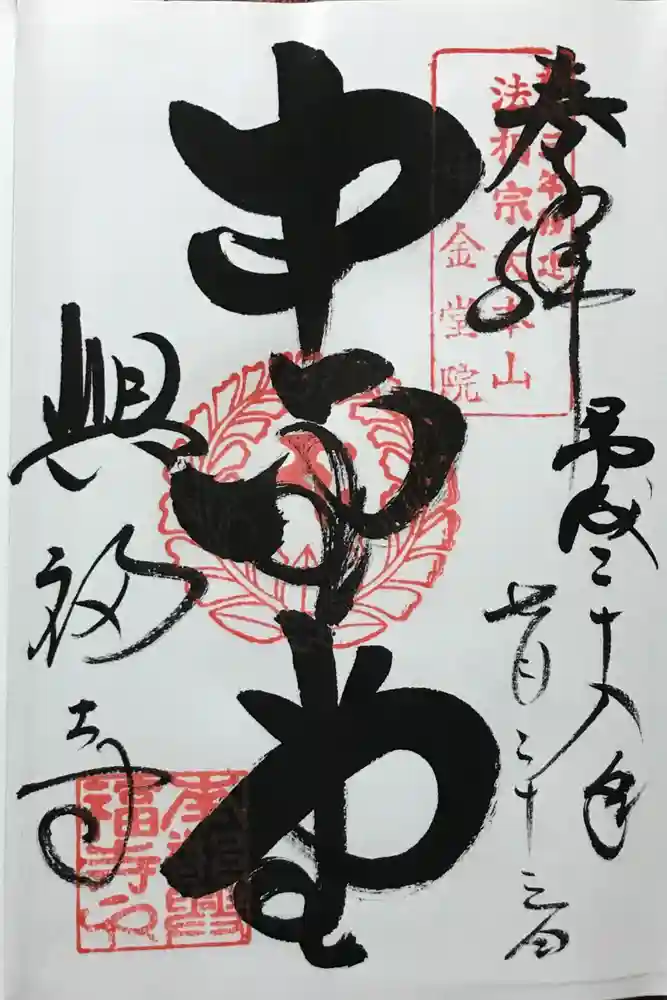 奉拝
平成二十八年
七月二十三日
法相宗大本山
金堂院
中金堂
興福寺